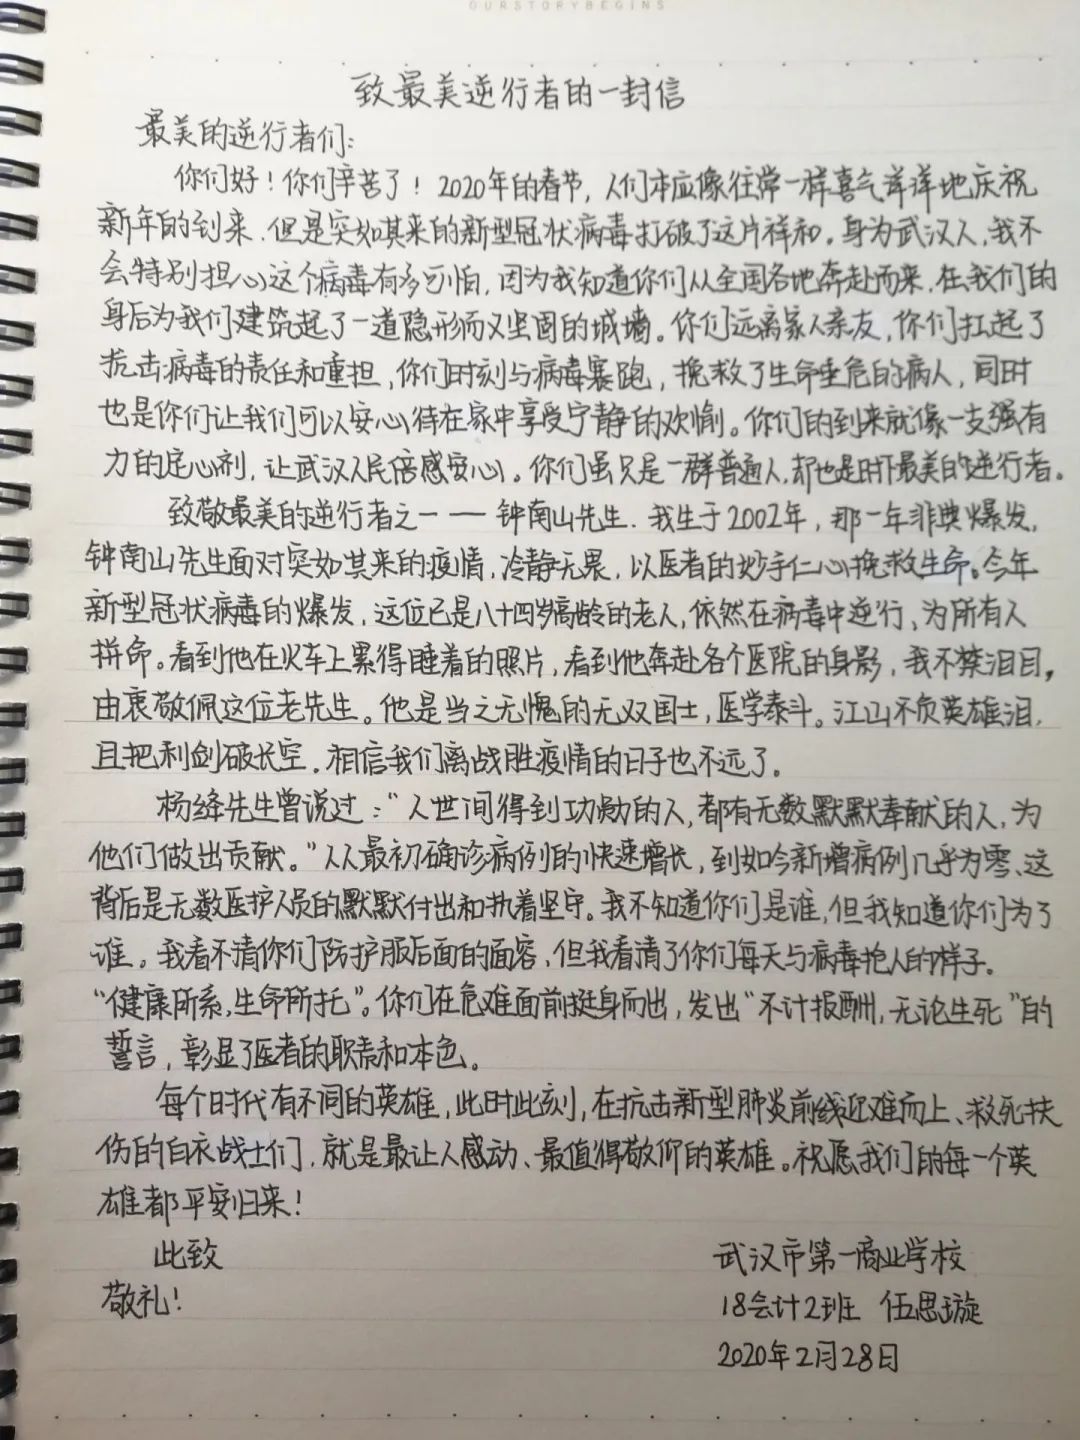 OURSTORYBEGINS
致最美逆行者的一封信
最美的逆行者们:
你们好！你们辛苦了！2020年的春节，人们本应像往常一样喜气洋洋地庆祝
新年的到来，但是突如其来的新型冠状病毒打破了这片祥和。身为武汉人，我不
会特别担心这个病毒有多可怕，因为我知道你们从全国各地奔赴而来，在我们的
身后为我们建筑起了一道隐形而又坚固的城墙。你们远离家人亲友，你们扛起了
抗击病毒的责任和重担，你们时刻与病毒赛跑，挽救了生命垂危的病人，同时
也是你们让我们可以安心待在家中享受宁静的欢愉。你们的到来就像一支强有
力的定心剂，让武汉人民倍感安心。你们虽只是一群普通人，却也是时下最美的逆行者。
致敬最美的逆行者之一——钟南山先生．我生于2002年，那一年非典爆发，
钟南山先生面对突如其来的疫情，冷静无畏，以医者的妙手仁心挽救生命。今年
新型冠状病毒的爆发，这位已是八十四岁高龄的老人，依然在病毒中逆行，为所有人
拼命。看到他在火车上累得睡着的照片，看到他奔赴各个医院的身影，我不禁泪目，
由衷敬佩这位老先生。他是当之无愧的无双国士，医学泰斗。江山不负英雄泪，
且把利剑破长空．相信我们离战胜疫情的日子也不远了。
杨绛先生曾说过：“人世间得到功勋的人，都有无数默默奉献的人，为
他们做出贡献。”从最初确诊病例的快速增长，到如今新增病例几乎为零、这
背后是无数医护人员的默默付出和执着坚守。我不知道你们是谁，但我知道你们为了
谁。我看不清你们防护服后面的面容，但我看清了你们每天与病毒抢人的样子。
“健康所系，生命所托”。你们在危难面前挺身而出，发出“不计报酬，无论生死”的
誓言，彰显了医者的职责和本色。
每个时代有不同的英雄，此时此刻，在抗击新型肺炎前线迎难而上、救死扶
伤的白衣战士们，就是最让人感动、最值得敬仰的英雄。祝愿我们的每一个英
雄都平安归来！
此致
敬礼！
武汉市第一商业学校
18会计2班 伍思璇
2020年2月28日